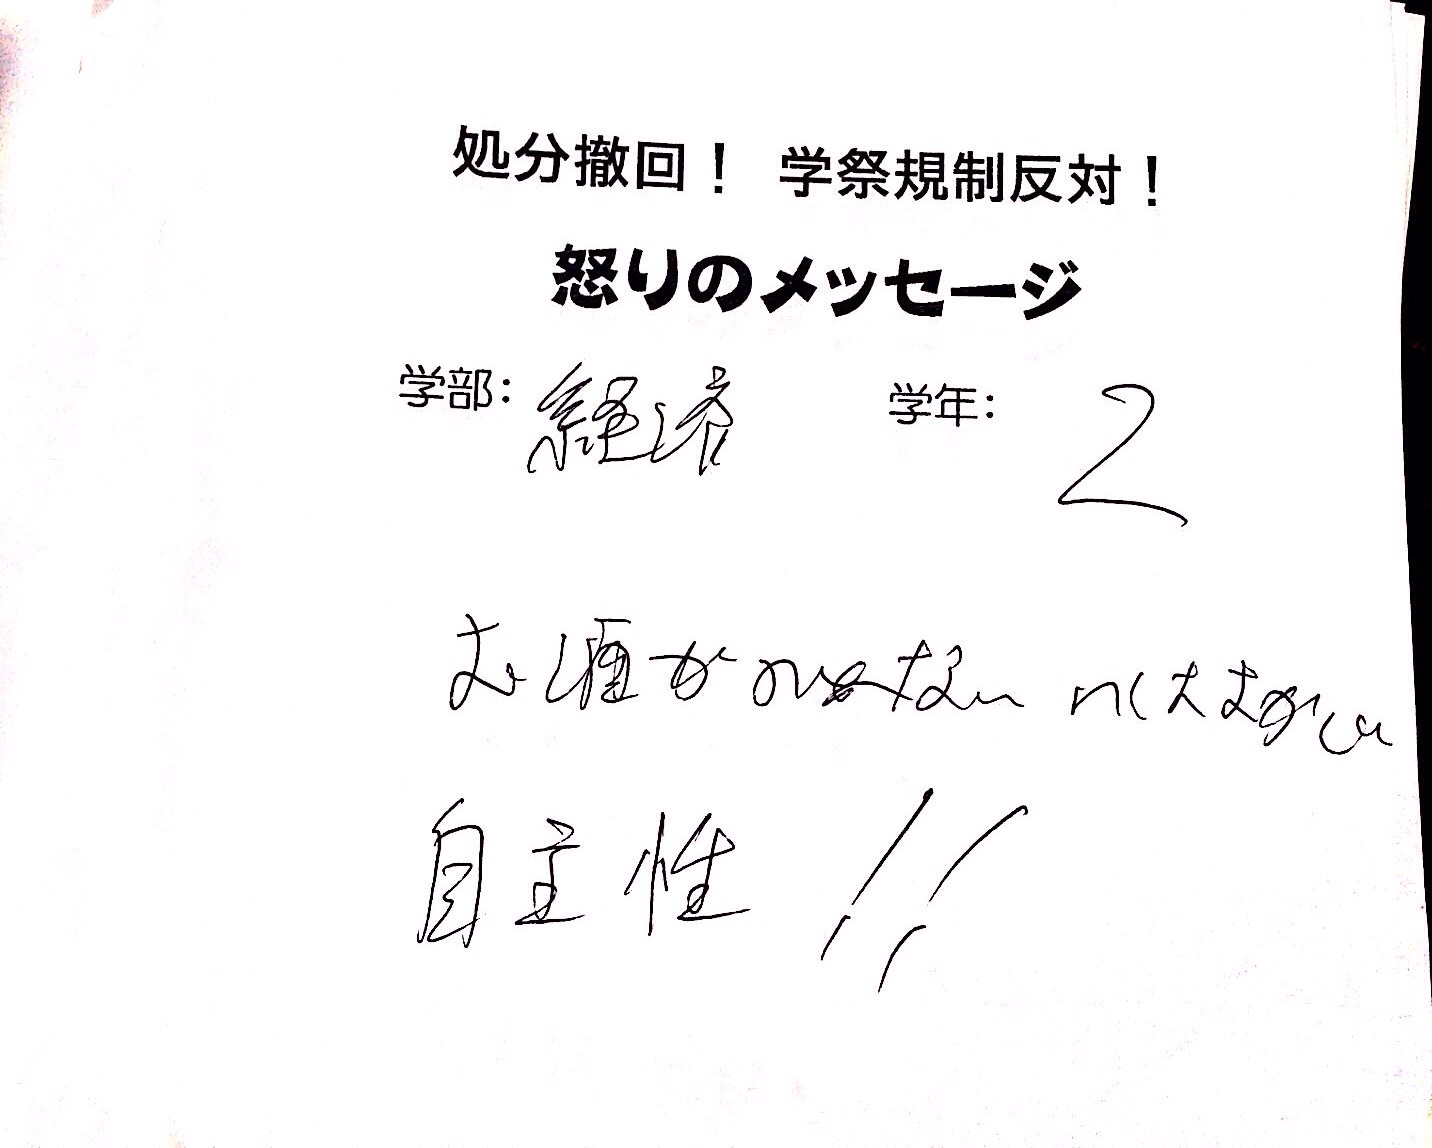 処分撤回！ 学祭規制反対！
怒りのメッセージ
学部: 経済 学年: 2
お酒がのめない
自主性!!